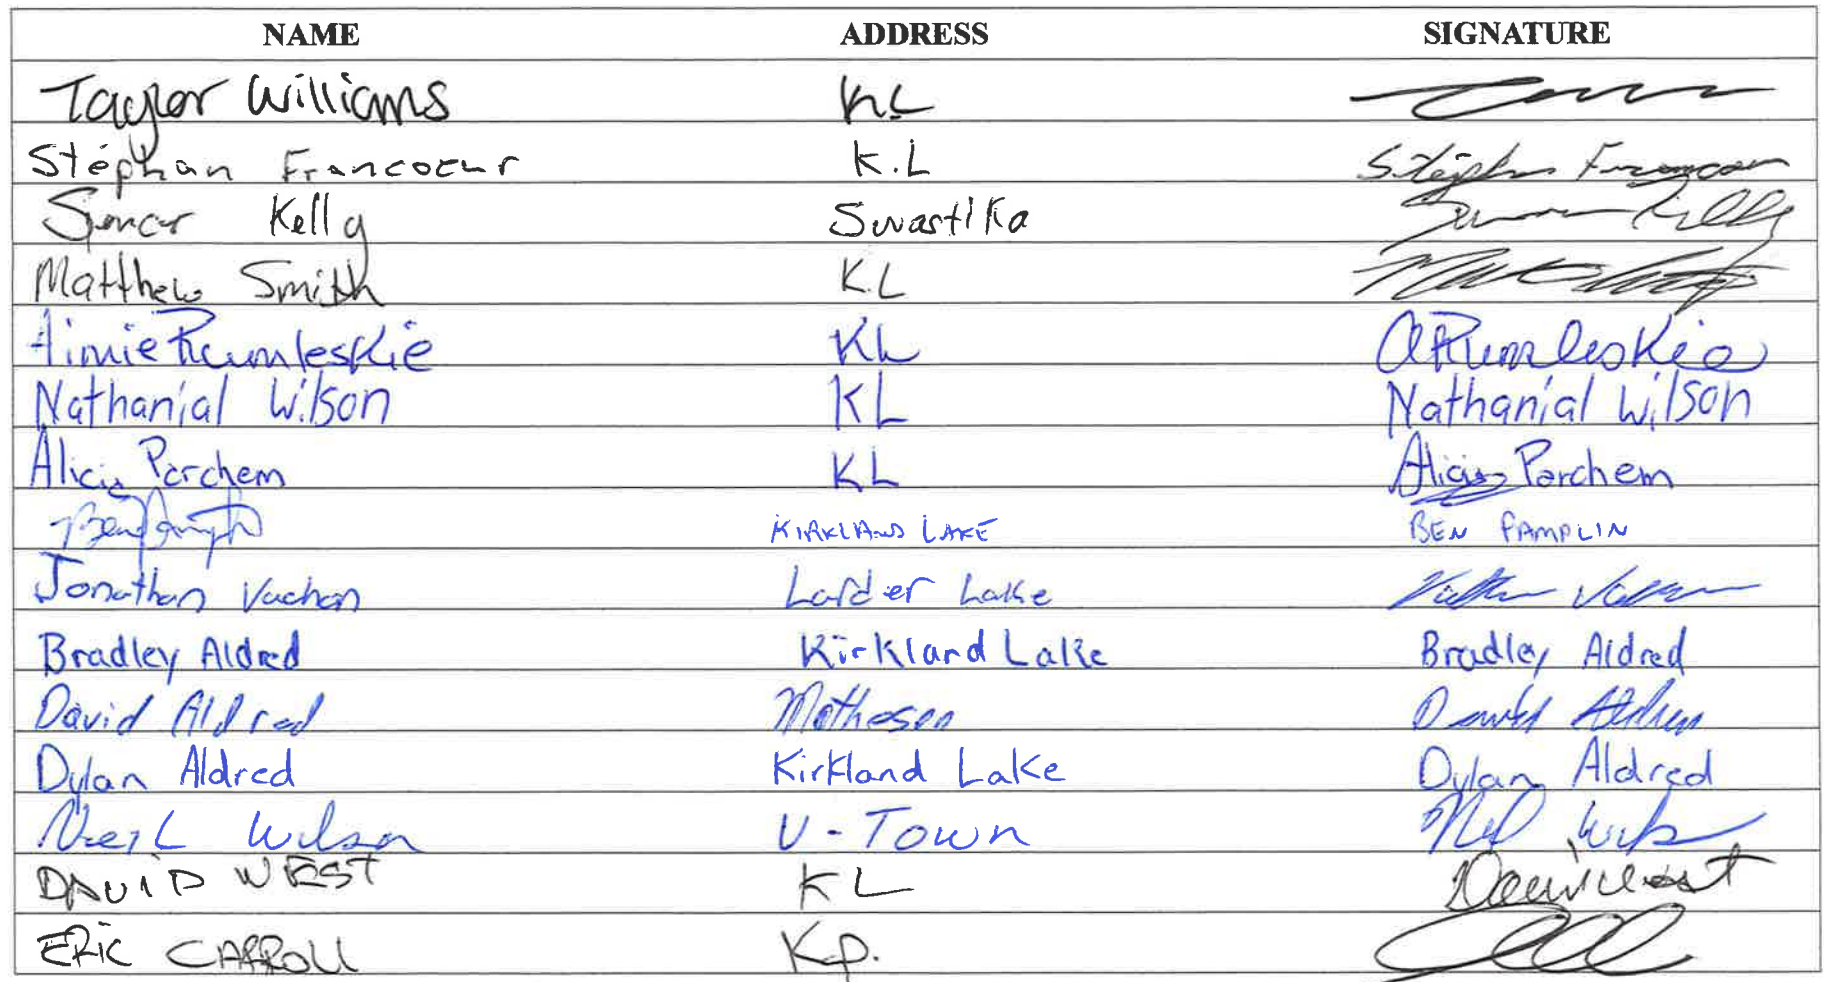 NAME ADDRESS SIGNATURE
Taylor Williams KL
Stéphan Francoeur K.L Stéphan Francoeur
Kelly Swastika Kelly
Matthew Smith K.L
Aimie Rumleskie KL ARumleskie
Nathanial Wilson KL Nathanial Wilson
Alicia Parchem KL Alicia Parchem
KIRKLAND LAKE BEN PAMPLIN
Jonathan Vachon Larder Lake
Bradley Aldred Kirkland Lake Bradley Aldred
David Aldred Matheson David Aldred
Dylan Aldred Kirkland Lake Dylan Aldred
Wilson V-Town
DAVID WEST KL David West
ERIC CARROLL K.P.